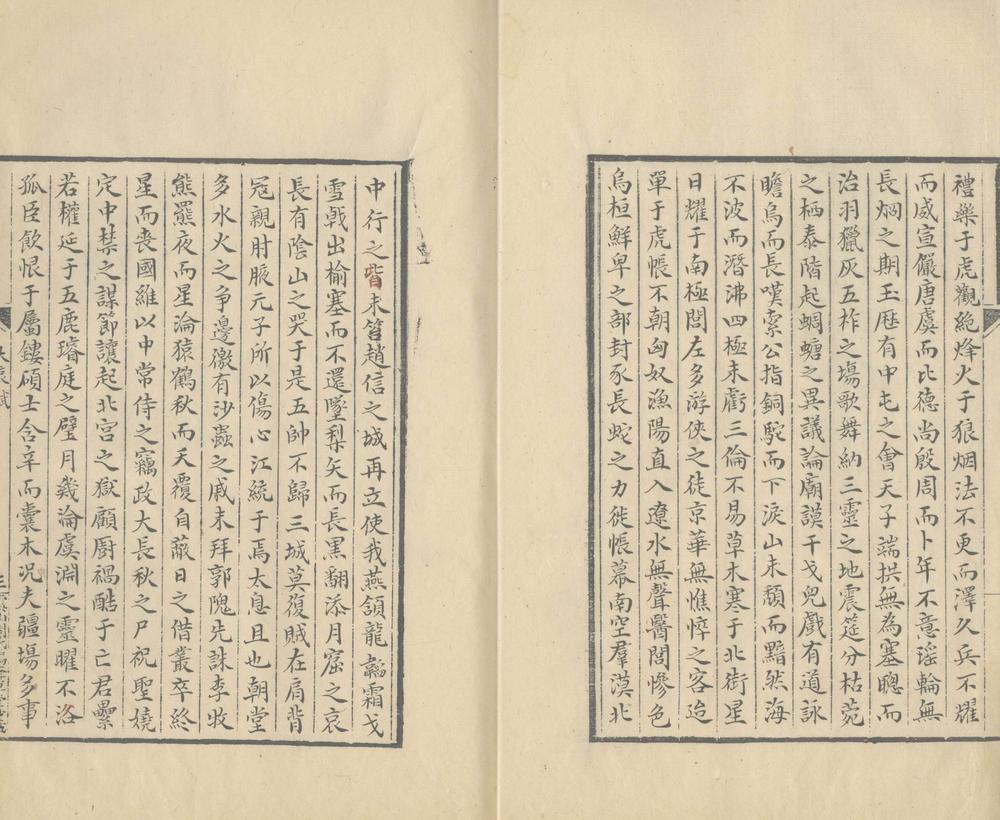 禮樂于虎觀絶烽火于狼烟法不更而澤久兵不耀
而威宣儼唐虞而比德尚殷周而卜年不意瑶輪無
長烱之期玉厯有中屯之會天子端拱無為塞聰而
治羽獵灰五柞之場歌舞納三靈之地震筵分枯菀
之栖泰階起蜩螗之異議論廟謨干戈兒戲有道詠
瞻烏而長嘆索公指銅駝而下淚山未頹而黯然海
不波而潛沸四極未虧三倫不易草木寒于北街星
日耀于南極閭左多游俠之徒京華無憔悴之客迨
單于虎帳不朝匈奴漁陽直入遼水無聲醫閭慘色
烏桓鮮卑之部封豕長蛇之力徙帳幕南空羣漠北
中行之背未笞趙信之城再立使我燕頷龍韜霜戈
雪戟出榆塞而不還墜梨矢而長黑翻添月窟之哀
長有陰山之哭于是五帥不歸三城莫復賊在肩背
冦親肘腋元子所以傷心江統于焉太息且也朝堂
多水火之争邊徼有沙蟲之戚未拜郭隗先誅李牧
熊羆夜而星淪猿鶴秋而天覆自蔽日之借叢卒終
星而喪國維以中常侍之竊政大長秋之尸祝聖嬈
定中禁之謀節讓起北宫之獄顧厨禍酷于亡君纍
若權延于五鹿璿庭之璧月幾淪虞淵之靈曜不洛
孤臣飲恨于屬鏤碩士含辛而囊木况夫疆場多事
大哀賦